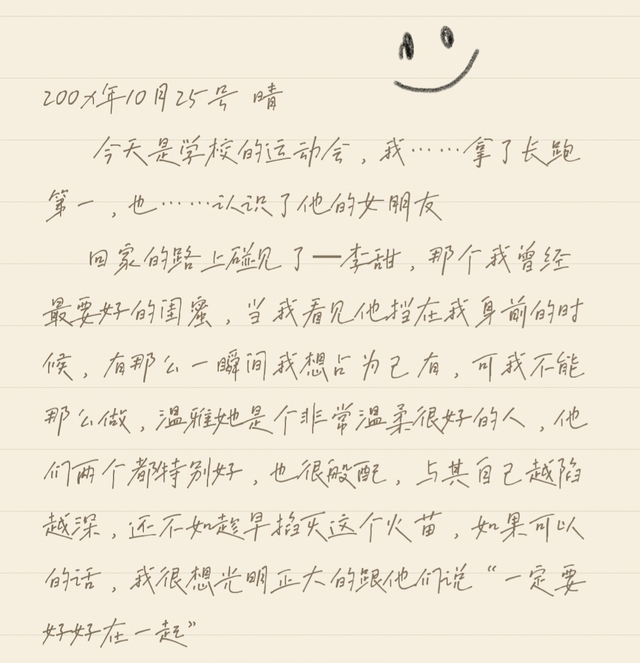 200x年10月25号 晴
今天是学校的运动会，我……拿了长跑
第一，也……认识了他的女朋友
回家的路上碰见了——李甜，那个我曾经
最要好的闺蜜，当我看见他挡在我身前的时
候，有那么一瞬间我想占为己有，可我不能
那么做，温雅她是个非常温柔很好的人，他
们两个都特别好，也很般配，与其自己越陷
越深，还不如趁早掐灭这个火苗，如果可以
的话，我很想光明正大的跟他们说“一定要
好好在一起”